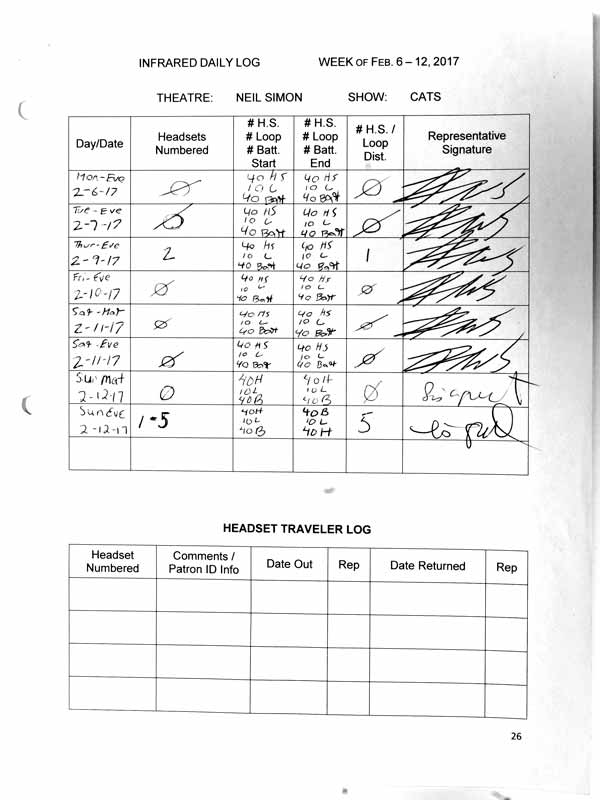 INFRARED DAILY LOG WEEK OF FEB. 6 – 12, 2017
THEATRE: NEIL SIMON SHOW: CATS
Day/Date
Headsets
Numbered
# H.S.
# Loop
# Batt.
Start
# H.S.
# Loop
# Batt.
End
# H.S. /
Loop
Dist.
Representative
Signature
Mon-Eve
2-6-17
Ø
40 HS
10 L
40 Batt
40 HS
10 L
40 Batt
Ø
Tue-Eve
2-7-17
Ø
40 HS
10 L
40 Batt
40 HS
10 L
40 Batt
Ø
Thur-Eve
2-9-17
2
40 HS
10 L
40 Batt
40 HS
10 L
40 Batt
1
Fri-Eve
2-10-17
Ø
40 HS
10 L
40 Batt
40 HS
10 L
40 Batt
Ø
Sat-Mat
2-11-17
Ø
40 HS
10 L
40 Batt
40 HS
10 L
40 Batt
Ø
Sat-Eve
2-11-17
Ø
40 HS
10 L
40 Batt
40 HS
10 L
40 Batt
Ø
Sun Mat
2-12-17
Ø
40H
10L
40B
40H
10L
40B
Ø
Sun Eve
2-12-17
1-5
40H
10L
40B
40B
10L
40H
5
HEADSET TRAVELER LOG
Headset
Numbered
Comments /
Patron ID Info
Date Out
Rep
Date Returned
Rep
26